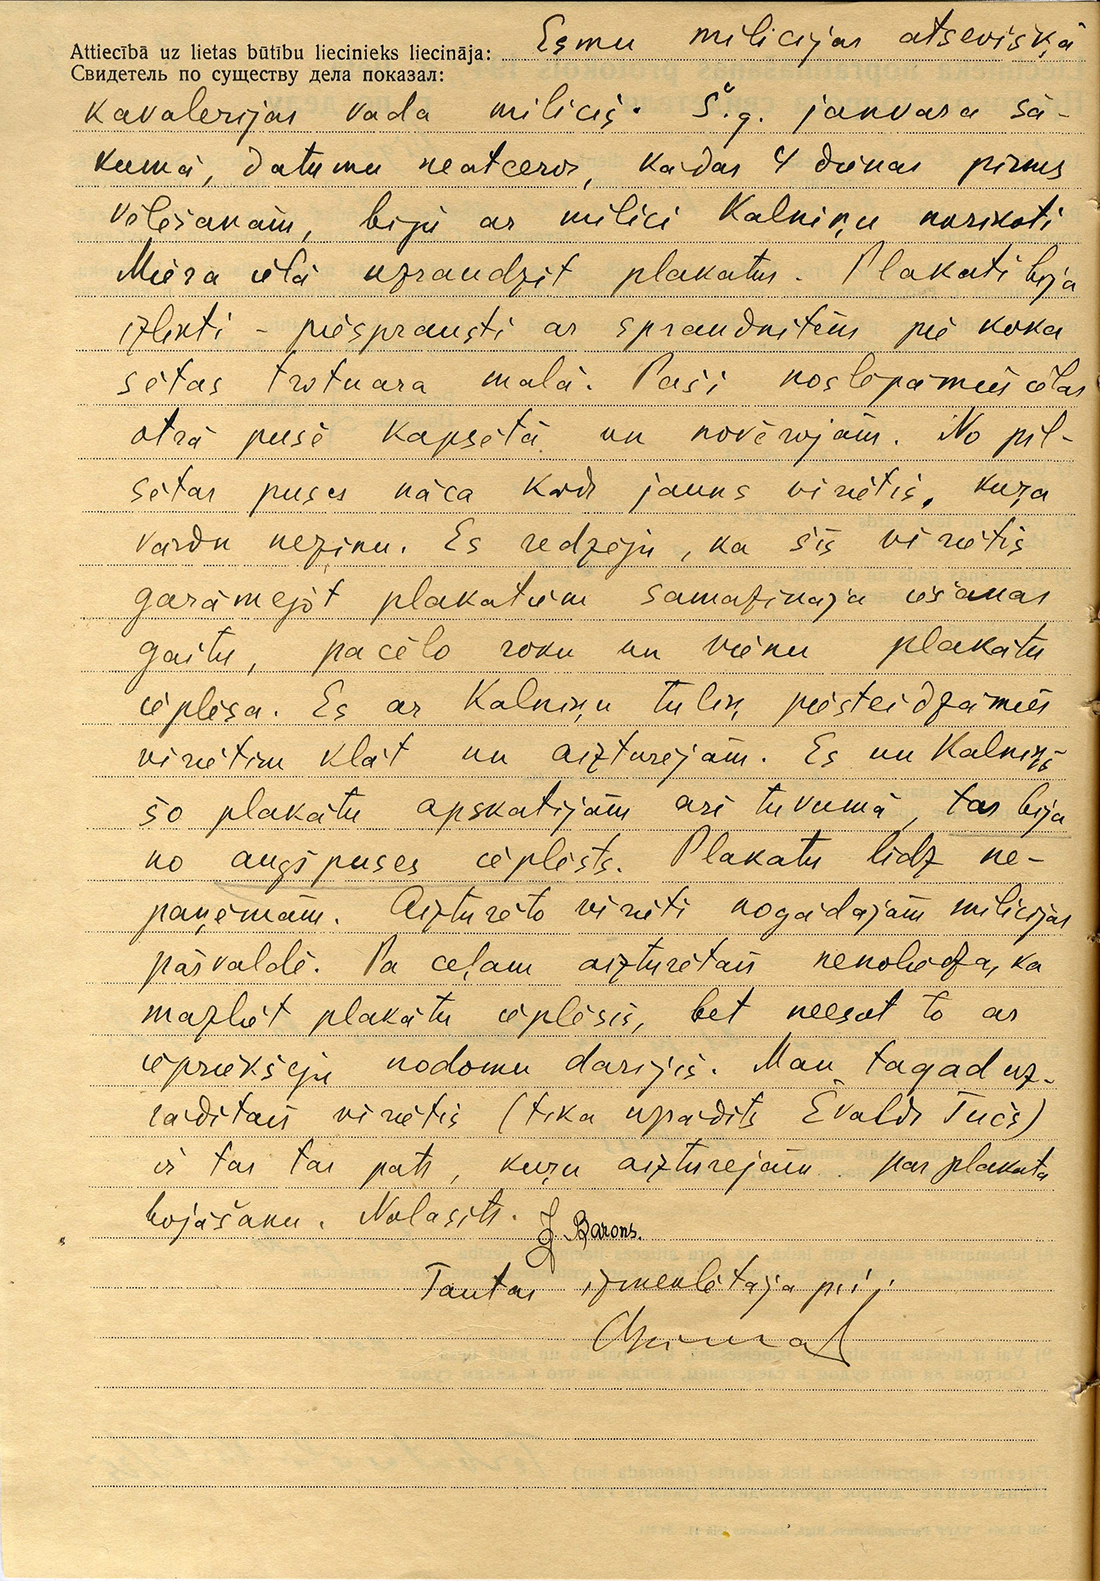 Attiecībā uz lietas būtību liecinieks liecināja: Esmu milicijas atsevišķā
Свидетель по существу дела показал:
kavalerijas vada milicis. Š.g. janvara sā-
kumā, datumu neatceros, kādas 4 dienas pirms
vēlēšanām, biju ar milici Kalniņu norīkoti
Miera ielā uzraudzīt plakatus. Plakati bija
izlikti - piesprausti ar spraudnītēm pie koka
sētas trotuara malā. Paši noslēpāmies ielas
otrā pusē kapsētā un novērojām. No pil-
sētas puses nāca kāds jauns vīrietis, kuŗa
vārdu nezinu. Es redzēju, ka šis vīrietis
garāmejot plakatiem samazinaja iešanas
gaitu, pacēla roku un vienu plakātu
ieplēsa. Es ar Kalniņu tūliņ piesteidzāmies
vīrietim klāt un aizturējām. Es un Kalniņš
šo plakātu apskatijām arī tuvumā, tas bija
no augšpuses ieplēsts. Plakatu līdz ne-
paņēmām. Aizturēto vīrieti nogādajām milicijas
pārvaldē. Pa ceļam aizturētais nenoliedza, ka
mazliet plakātu ieplēsis, bet neesot to ar
iepriekšēju nodomu darijis. Man tagad uz-
rādītais vīrietis (tika uzrādīts Ēvalds Tučs)
ir tas tas pats, kuŗu aizturējām par plakata
bojāšanu. Nolasīts. J. Barons.
Tautas izmeklētāja pal.